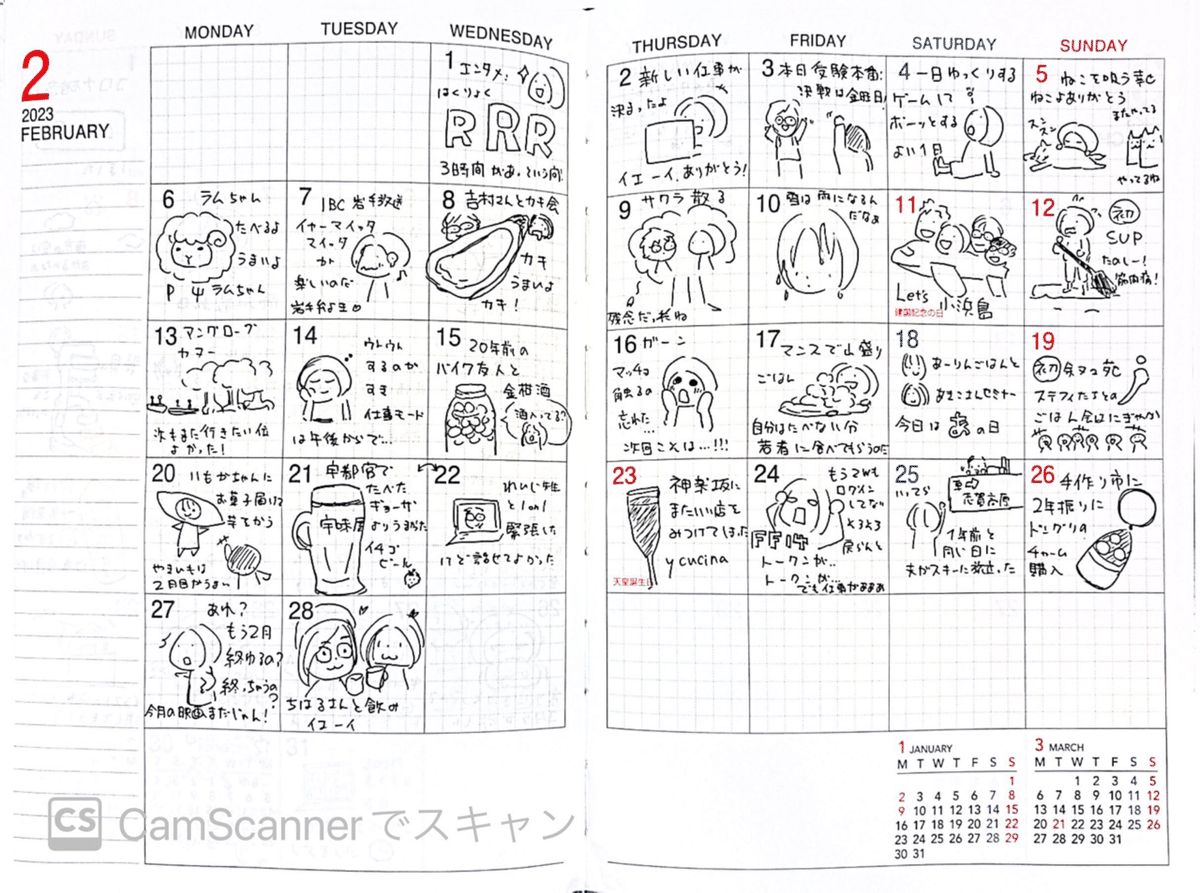 2
2023
FEBRUARY
MONDAY
TUESDAY
WEDNESDAY
THURSDAY
FRIDAY
SATURDAY
SUNDAY
1 エンタメ!
はくりょく
RRR
3時間
という間
2 新しい仕事が
決まったよ
イエーイ、ありがとう!
3 本日受験本番
決戦は金曜日
4 一日ゆっくりする
ゲームして
ボーッとする
よい1日
5 ねこを吸う
ねこよありがとう
またやってる
スンスン
やってるね
6 ラムちゃん
たべるよ
うまいよ
ラムちゃん
7 IBC岩手放送
イヤーマイッタ
マイッタ
が
楽しいのだ
8 吉村さんとカキ会
カキ
うまいよ
カキ!
9 サクラ散る
残念だったね
10 雪は雨になるん
だなぁ
11
Let's 小浜島
建国記念の日
12
初
SUP
たのしー!
筋肉痛!
13 マングローブ
カヌー
次もまた行きたい位
よかった!
14
ウトウト
するのが
すぎ
仕事モード
は午後からで…
15 20年前の
バイク友人と
金柑酒
酒入ってる?
16 ガーン
マッチョ
触るの
忘れた…
次回こそは…!!!
17 マンスで山盛り
ごはん
自分はたべない分
若者に食べてもらうのだ
18
あーりんごはんと
今日は
の日
19
初
ごはん会はにぎやか
20 いもかちゃんに
お菓子届けて
芋をかう
やきいもは
2月目がうまい
21 宇都宮で
たべた
ギョーザ
よりうまかった
宇味屋
イチゴ
ビール
22
と1on1
緊張した
けど話せてよかった
23
神楽坂に
またいい店を
みつけてしまった
y cucina
天皇誕生日
24
もう2Wも
ログイン
してない
トークンが…
トークンが…
でも仕事がぁぁぁ
25
1年前と
同じ日に
夫がスキーに旅立った
26 手作り市に
2年振りに
ドングリの
チャーム
購入
27 あれ?
もう2月
終わるの?
終っちゃうの?
今月の映画まだじゃん!
28
ちはるさんと飲み
イエーイ
1 JANUARY
M T W T F S S
1
2 3 4 5 6 7 8
9 10 11 12 13 14 15
16 17 18 19 20 21 22
23 24 25 26 27 28 29
30 31
3 MARCH
M T W T F S S
1 2 3 4 5
6 7 8 9 10 11 12
13 14 15 16 17 18 19
20 21 22 23 24 25 26
27 28 29 30 31
CS CamScannerでスキャン